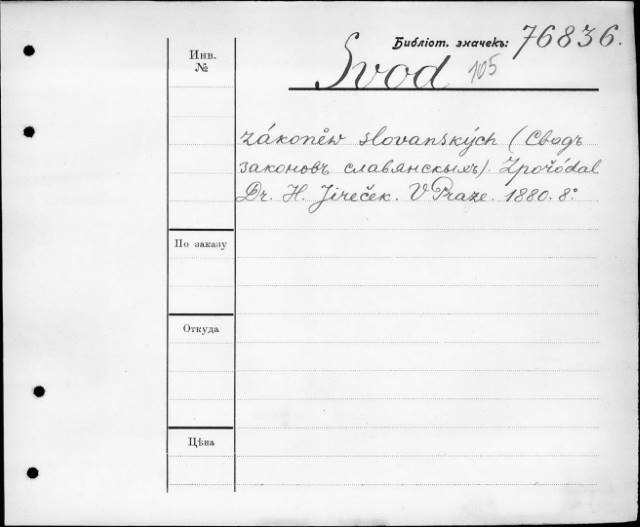 Библіот. значекъ: 76836.
Инв.
№
Svod 105
zákoněw slovanských (Сводъ
законовъ славянскихъ). Zpořódal
Dr. H. Jireček. V Praze. 1880. 8º
По заказу
Откуда
Цѣна